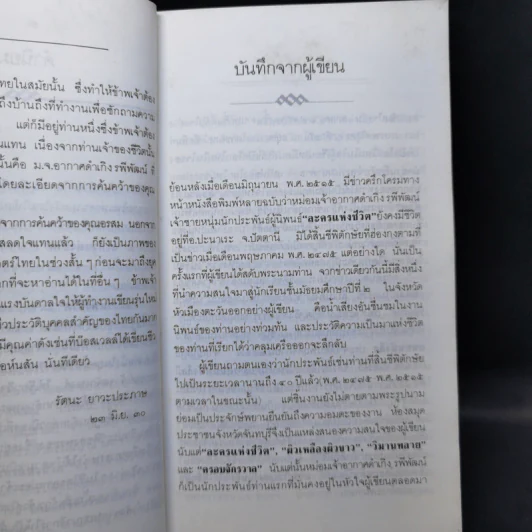 ทยในสมัยนั้น ซึ่งทำให้ข้าพเจ้าต้อง
ถึงบ้านถึงที่ทำงานเพื่อซักถามความ
แต่ก็มีอยู่ท่านหนึ่งซึ่งข้าพเจ้าต้อง
แทน เนื่องจากท่านเจ้าของชีวิตนั้น
นั้นคือ ม.จ.อากาศดำเกิง รพีพัฒน์
โดยละเอียดจากการค้นคว้าของคุณ
จากการค้นคว้าของคุณอรสม นอกจาก
สลดใจแทนแล้ว ก็ยังเป็นภาพของ
ตร์ไทยในช่วงสั้น ๆ ก่อนจะมาถึงยุค
กที่จะหาอ่านได้ในที่อื่น ๆ ข้าพเจ้า
แรงบันดาลใจให้ผู้ทำงานเขียนรุ่นใหม่
ประวัติบุคคลสำคัญของไทยกันมาก
มีคุณค่าดังเช่นที่บ๊อสเวลล์ได้เขียนชีว
ห์นสัน นั่นทีเดียว
รัตนะ ยาวะประภาษ
๒๓ มิ.ย. ๓๐
บันทึกจากผู้เขียน
ย้อนหลังเมื่อเดือนมิถุนายน พ.ศ.๒๕๑๕ มีข่าวครึกโครมทาง
หน้าหนังสือพิมพ์หลายฉบับว่าหม่อมเจ้าอากาศดำเกิง รพีพัฒน์
เจ้าชายหนุ่มนักประพันธ์ผู้นิพนธ์"ละครแห่งชีวิต"ยังคงมีชีวิต
อยู่ที่อ.ปะนาเระ จ.ปัตตานี มิได้สิ้นชีพิตักษัยที่ฮ่องกงตามที่
เป็นข่าวเมื่อเดือนพฤษภาคม พ.ศ. ๒๔๗๕ แต่อย่างใด นั่นเป็น
ครั้งแรกที่ผู้เขียนได้สดับพระนามท่าน จากข่าวเดียวกันนี้มีสิ่งหนึ่ง
ที่นำความสนใจมาสู่นักเรียนชั้นมัธยมศึกษาปีที่ ๒ ในจังหวัด
หัวเมืองตะวันออกอย่างผู้เขียน คือน้ำเสียงอันชื่นชมในงาน
นิพนธ์ของท่านอย่างท่วมท้น และประวัติความเป็นมาแห่งชีวิต
ของท่านที่เรียกได้ว่าคลุมเครือออกจะลึกลับ
ผู้เขียนถามตนเองว่านักประพันธ์เช่นท่านที่สิ้นชีพิตักษัย
ไปเป็นระยะเวลานานถึง ๔๐ ปีแล้ว(พ.ศ.๒๔๗๕ พ.ศ.๒๕๑๕
ตามเวลาในขณะนั้น) แต่ชิ้นงานยังไม่ตายตามพระรูปนาม
ย่อมเป็นประจักษ์พยานยืนยันถึงความอมตะของงาน ห้องสมุด
ประชาชนจังหวัดจันทบุรีจึงเป็นแหล่งสนองความสนใจของผู้เขียน
นับแต่"ละครแห่งชีวิต", "ผิวเหลืองผิวขาว", "วิมานทลาย"
และ "ครอบจักรวาล" นับแต่นั้นหม่อมเจ้าอากาศดำเกิง รพีพัฒน์
ก็เป็นนักประพันธ์ท่านแรกที่มั่นคงอยู่ในหัวใจผู้เขียนตลอดมา